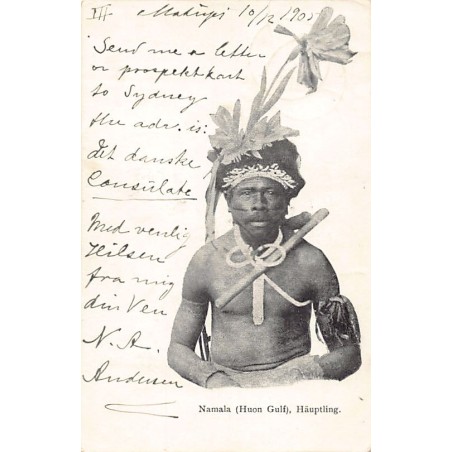 III Matupi 10/12 1905
Send me a letter
or prospektkort
to Sydney
the adr. is:
det danske
Consulate
Med venlig
Hilsen
fra mig
din Ven
N. A.
Andersen
Namala (Huon Gulf), Häuptling.